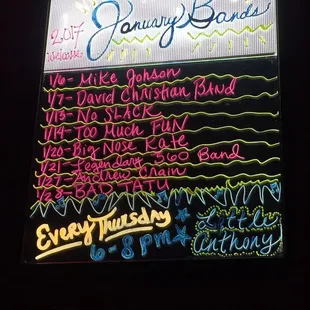 2017 January Bands
Welcome
1/6- Mike Johson
1/7- David Christian BAND
1/13- No SLACK
1/14- TOO MUCH FUN
1/20- Big Nose Kate
1/21- Legendary 560 Band
1/27- Andrew Crain
1/28- BAD TATU
Every Thursday
6-8pm
Little
Anthony